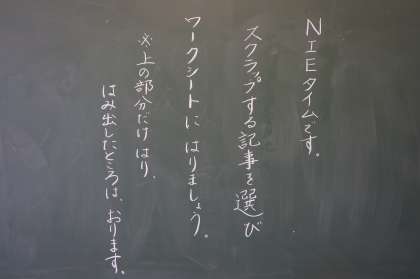 NIEタイムです。
スクラップする記事を選び
ワークシートに はりましょう。
※上の部分だけ はり、
はみ出したところは、おります。